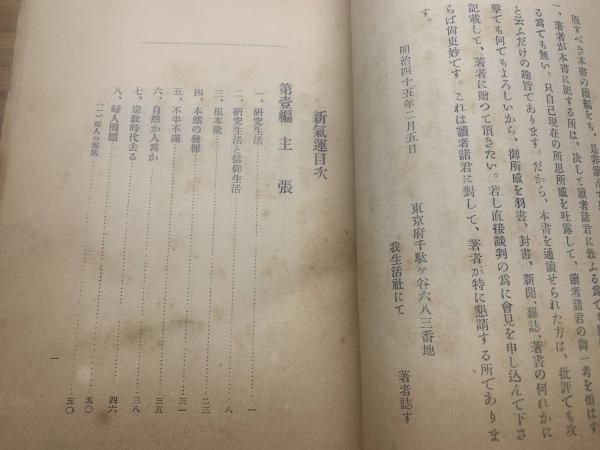 版すべき本書の續編をも、是非讀んで
一、著者が本書に記する所は、決して讀者諸君に敎ふる爲でも
る爲でも無い。只自己現在の所思所感を吐露して、讀者諸君の御一考を煩はす
と云ふだけの趣旨であります。だから、本書を通讀せられた方は、批評でも攻
擊でも何でもよろしいから、御所感を羽書、封書、新聞、雜誌、著書の何れかに
記載して、著者に贈つて頂きたい。若し直接談判の爲に會見を申し込んで下さ
らば尙更妙です。これは讀者諸君に對して、著者が特に懇請する所でありま
す。
明治四十五年二月五日
東京府千駄ヶ谷六八三番地
我生活社にて
著者誌す
新氣運目次
第壹編 主張
一、硏究生活……一
二、硏究生活と信仰生活……八
三、根本欲……
四、本然の發揮……二三
五、不平不滿……三一
六、自然か人爲か……三五
七、宗敎時代去る……三八
八、婦人問題……四六
(一)婦人の現狀……五〇
五〇
一